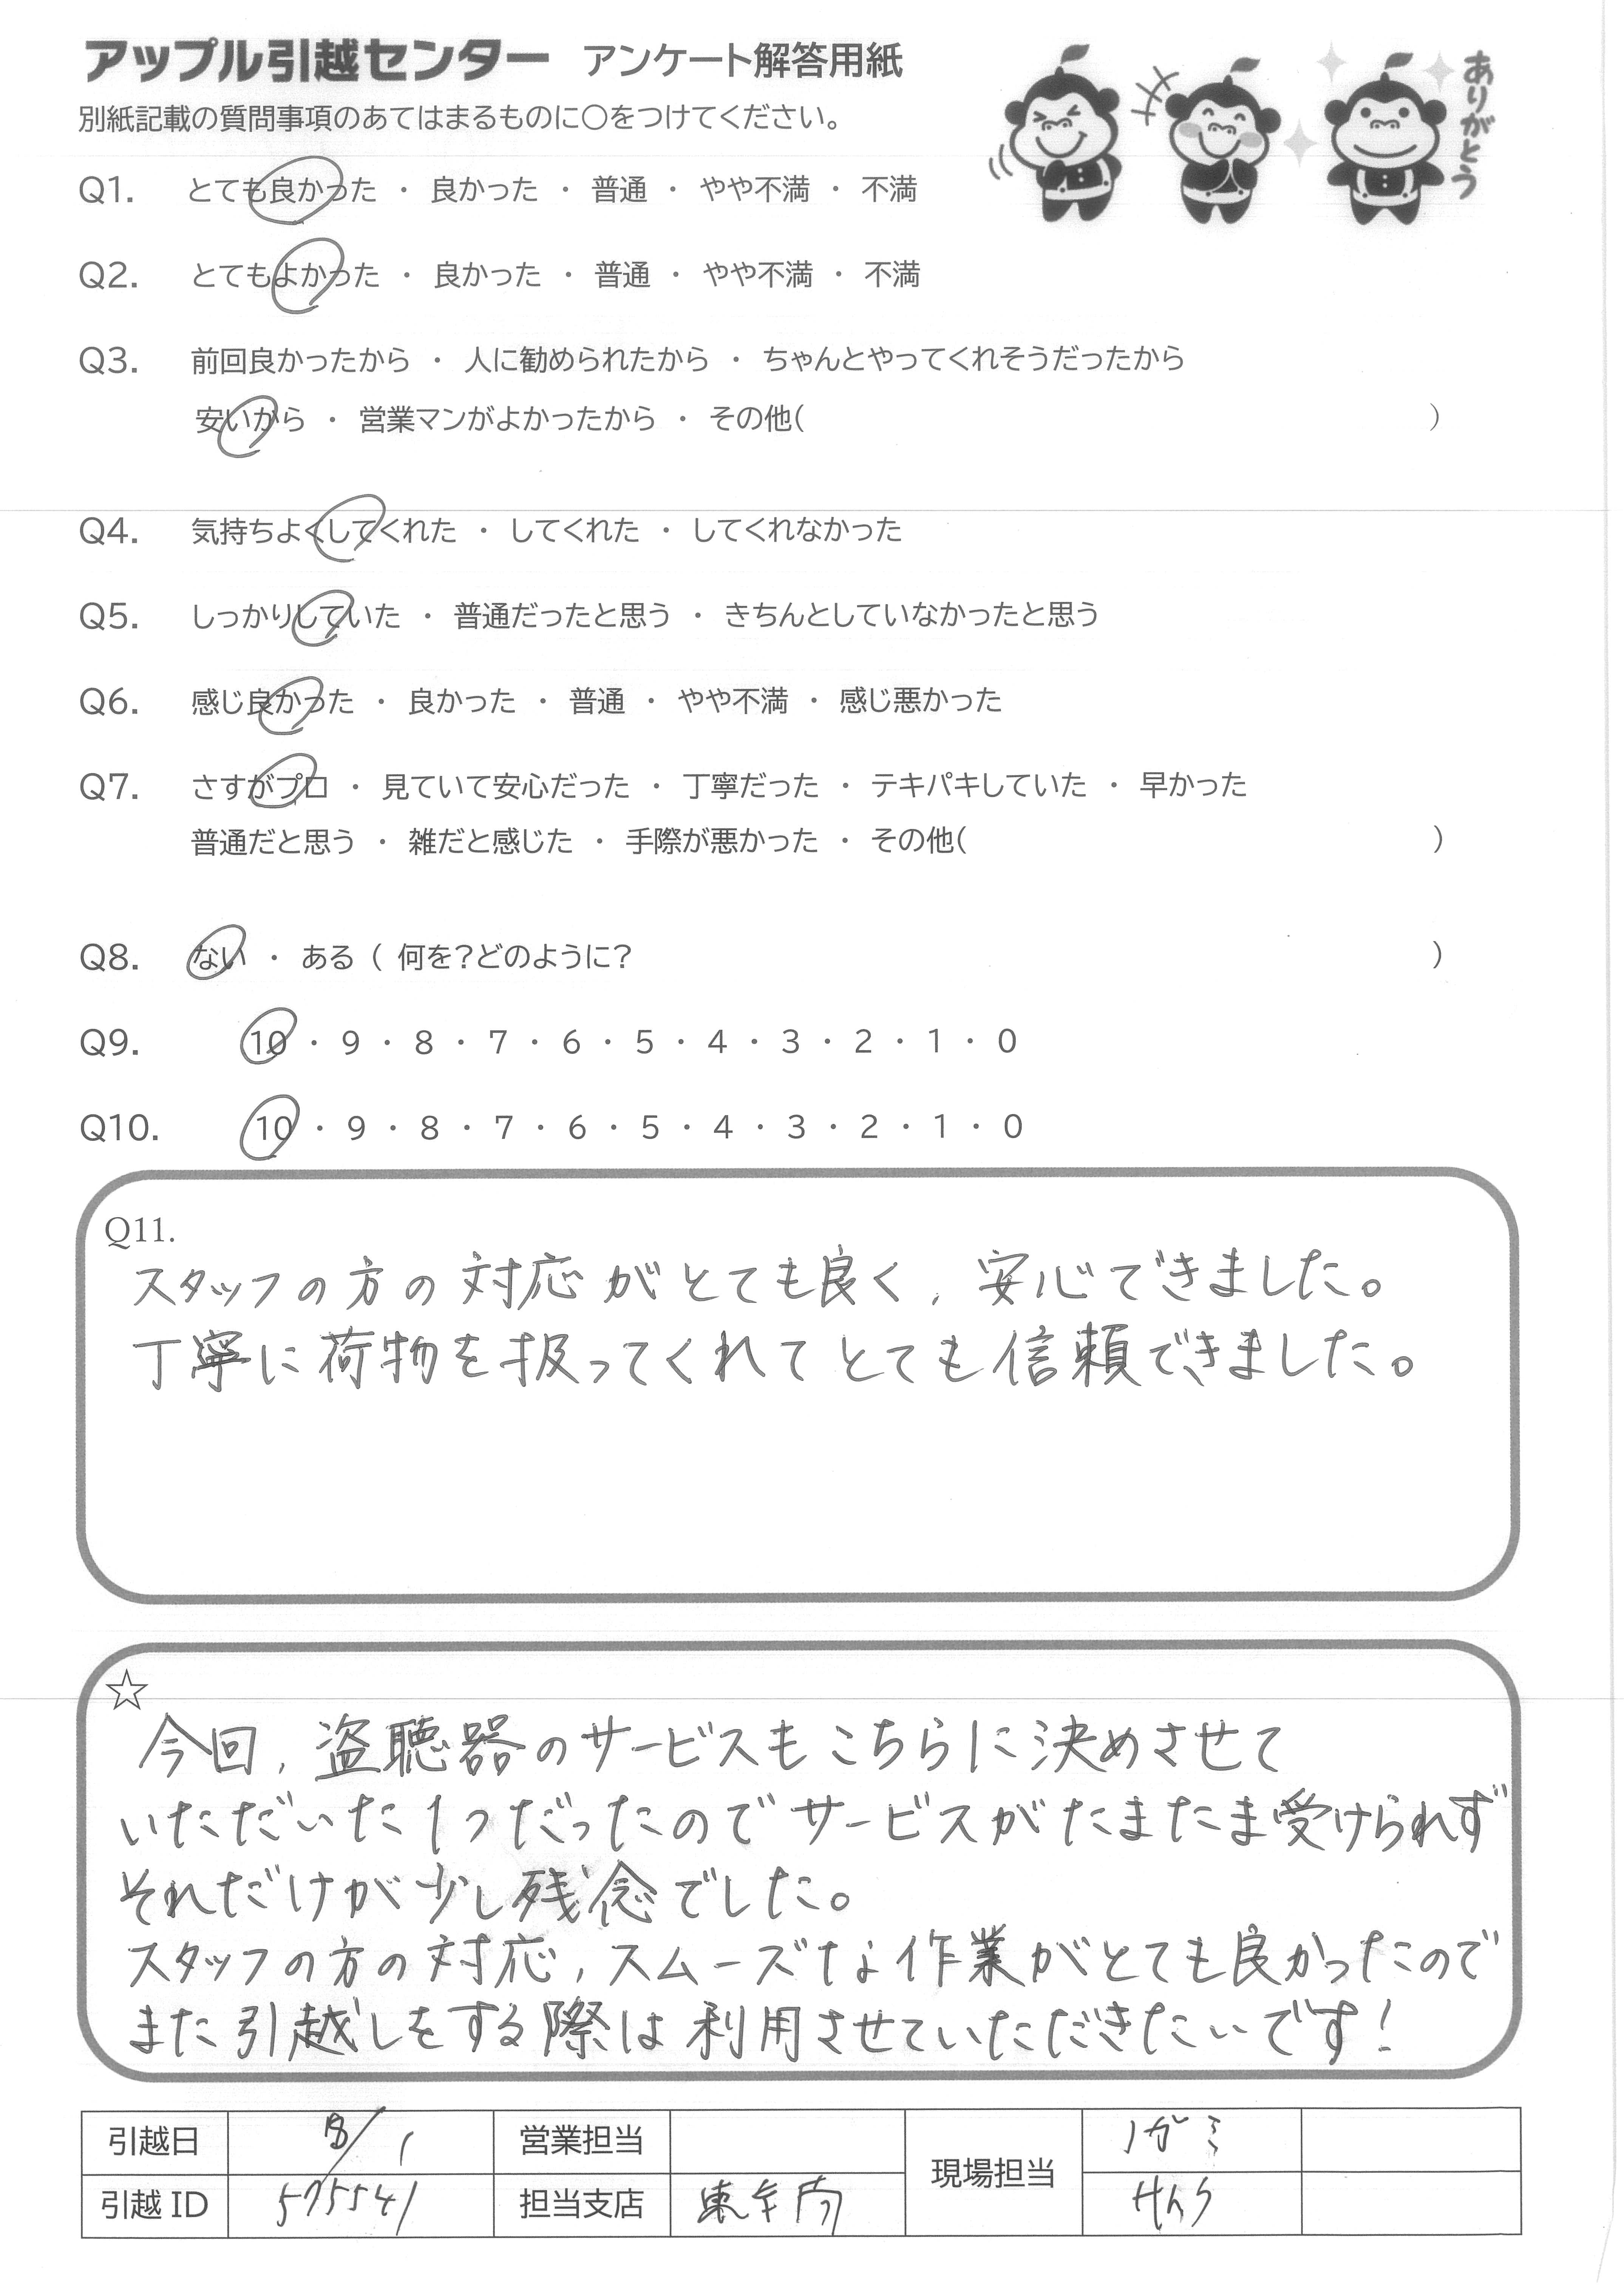 アップル引越センター アンケート解答用紙
別紙記載の質問事項のあてはまるものに○をつけてください。
ありがとう
Q1. とても良かった ・ 良かった ・ 普通 ・ やや不満 ・ 不満
Q2. とてもよかった ・ 良かった ・ 普通 ・ やや不満 ・ 不満
Q3. 前回良かったから ・ 人に勧められたから ・ ちゃんとやってくれそうだったから
安いから ・ 営業マンがよかったから ・ その他( )
Q4. 気持ちよくしてくれた ・ してくれた ・ してくれなかった
Q5. しっかりしていた ・ 普通だったと思う ・ きちんとしていなかったと思う
Q6. 感じ良かった ・ 良かった ・ 普通 ・ やや不満 ・ 感じ悪かった
Q7. さすがプロ ・ 見ていて安心だった ・ 丁寧だった ・ テキパキしていた ・ 早かった
普通だと思う ・ 雑だと感じた ・ 手際が悪かった ・ その他( )
Q8. ない ・ ある ( 何を?どのように? )
Q9. 10 ・ 9 ・ 8 ・ 7 ・ 6 ・ 5 ・ 4 ・ 3 ・ 2 ・ 1 ・ 0
Q10. 10 ・ 9 ・ 8 ・ 7 ・ 6 ・ 5 ・ 4 ・ 3 ・ 2 ・ 1 ・ 0
Q11.
スタッフの方の対応がとても良く、安心できました。
丁寧に荷物を扱ってくれてとても信頼できました。
☆
今回、盗聴器のサービスもこちらに決めさせて
いただいた1つだったのでサービスがたまたま受けられず
それだけが少し残念でした。
スタッフの方の対応、スムーズな作業がとても良かったので
また引越しをする際は利用させていただきたいです!
引越日 営業担当 現場担当
引越ID 575541 担当支店